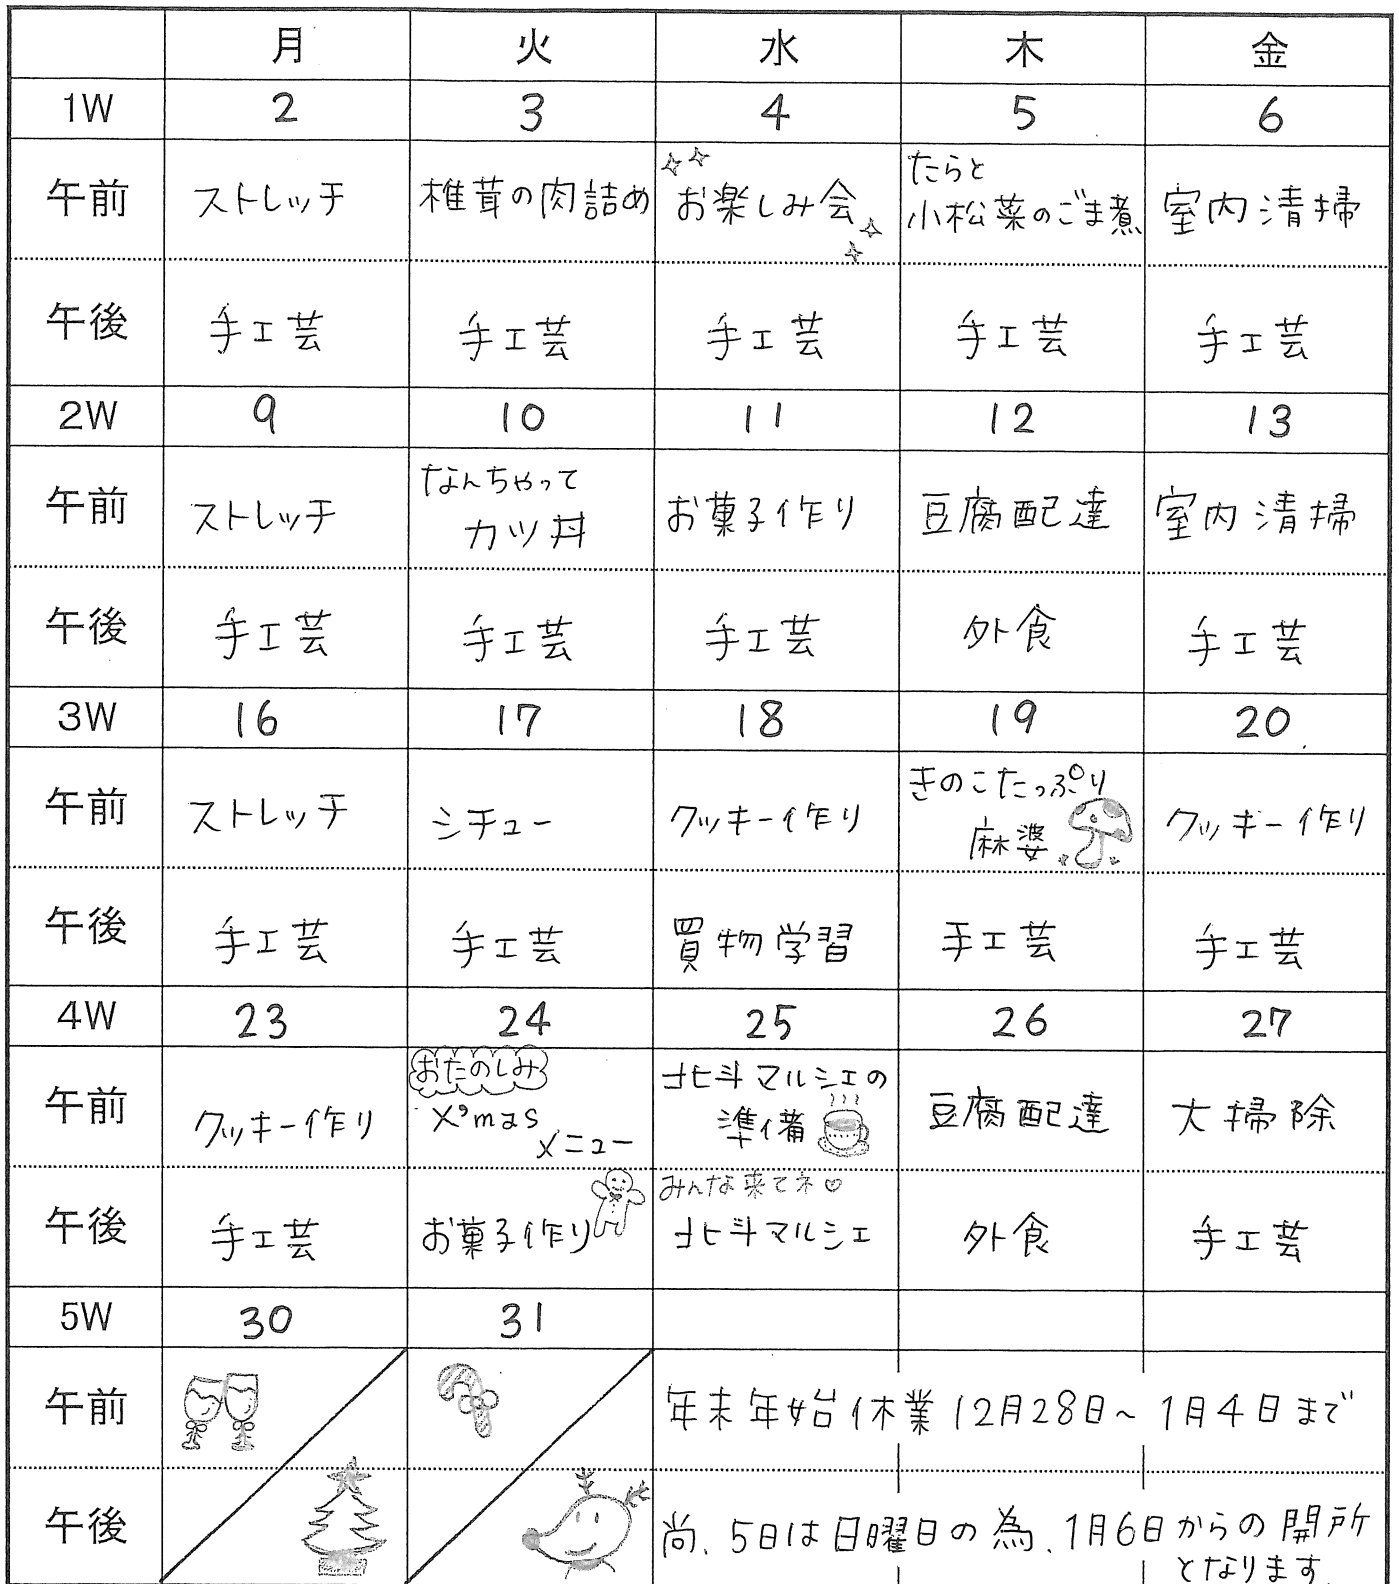 月 火 水 木 金
1W 2 3 4 5 6
午前 ストレッチ 椎茸の肉詰め お楽しみ会 たらと
小松菜のごま煮 室内清掃
午後 手工芸 手工芸 手工芸 手工芸 手工芸
2W 9 10 11 12 13
午前 ストレッチ なんちゃって
カツ丼 お菓子作り 豆腐配達 室内清掃
午後 手工芸 手工芸 手工芸 外食 手工芸
3W 16 17 18 19 20
午前 ストレッチ シチュー クッキー作り きのこたっぷり
麻婆 クッキー作り
午後 手工芸 手工芸 買物学習 手工芸 手工芸
4W 23 24 25 26 27
午前 クッキー作り おたのしみ
X'mas
メニュー 北斗マルシェの
準備 豆腐配達 大掃除
午後 手工芸 お菓子作り みんな来てネ♡
北斗マルシェ 外食 手工芸
5W 30 31
午前 年末年始休業12月28日~1月4日まで
午後 尚、5日は日曜日の為、1月6日からの開所
となります。